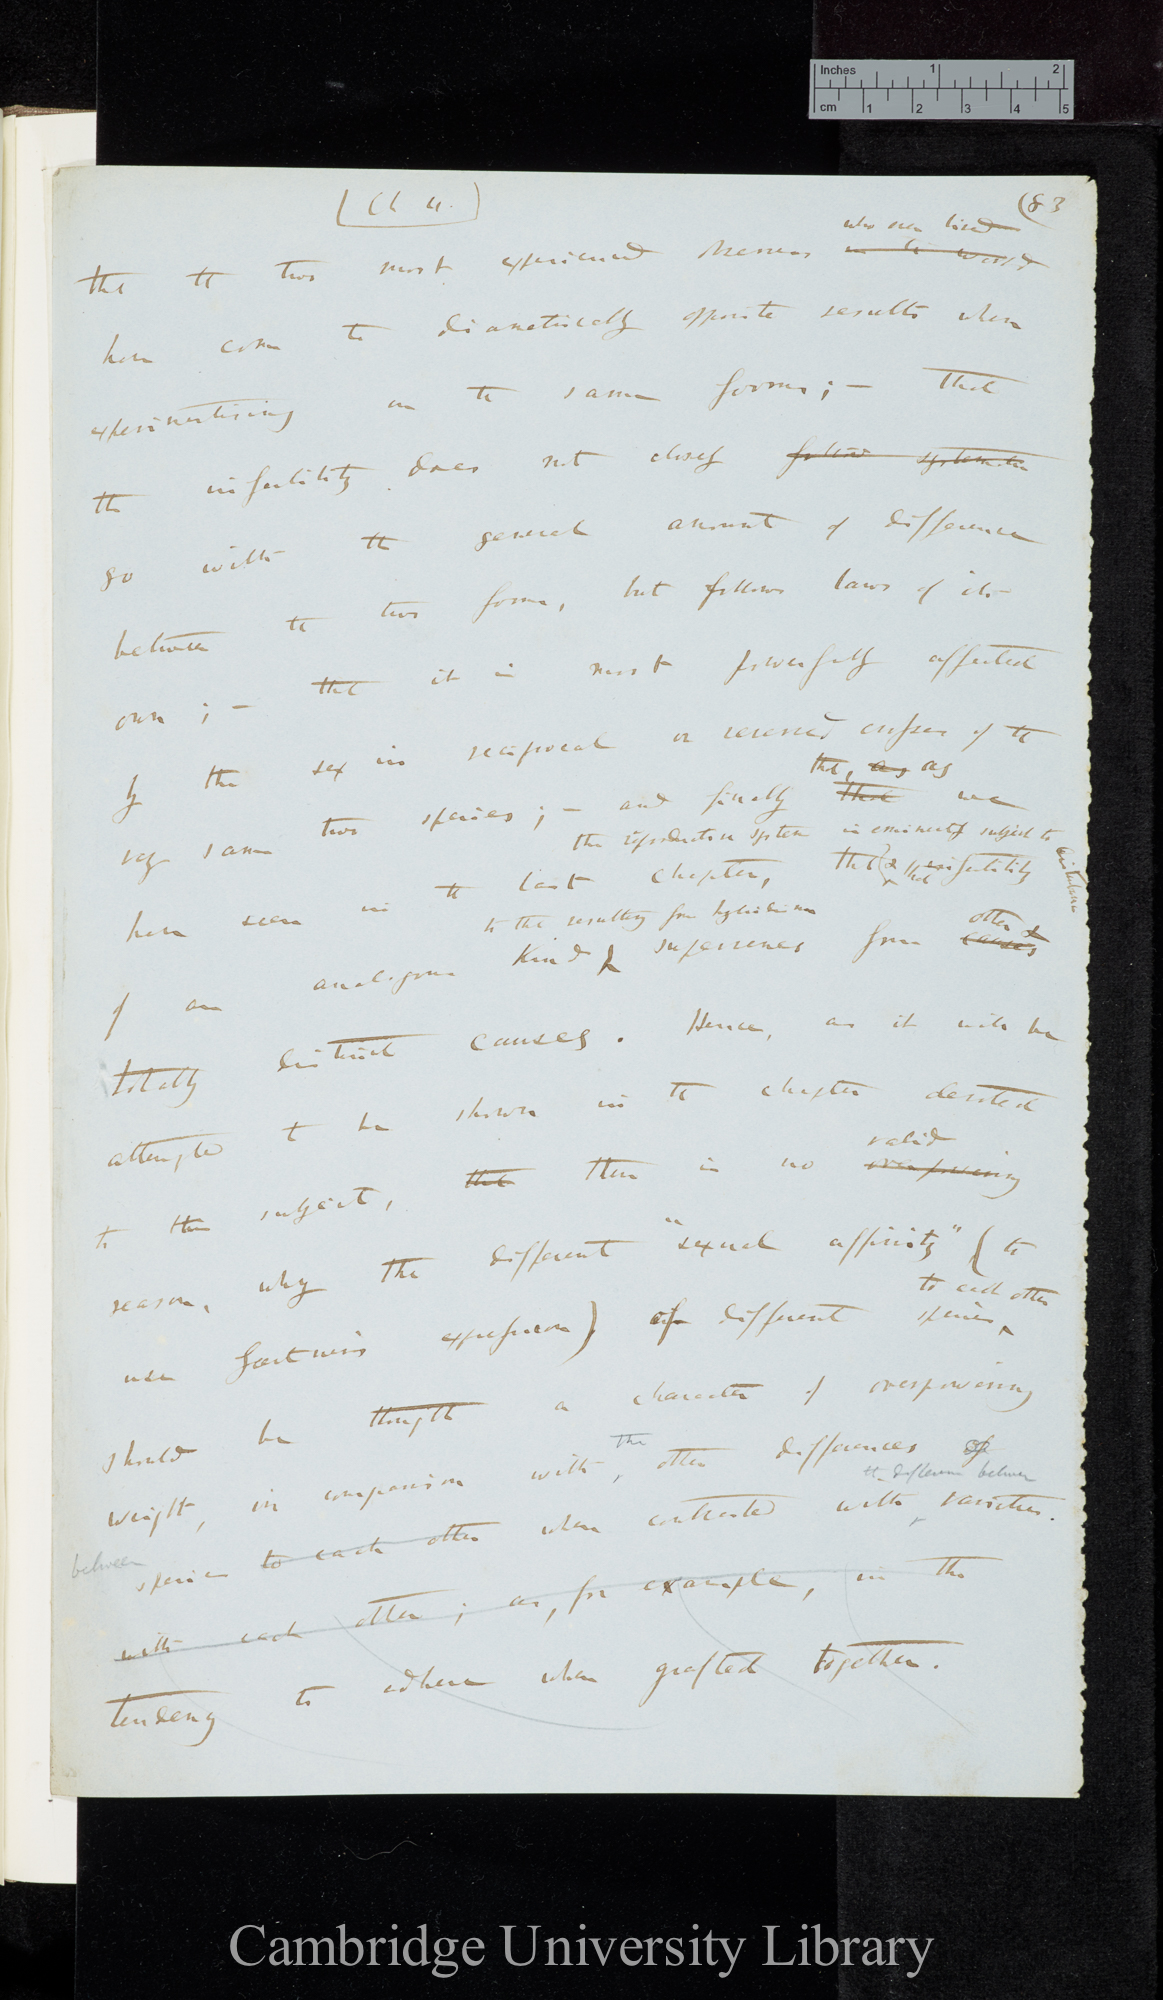 Inches 1 2
cm 1 2 3 4 5
Ch 4. (83
who ever lived
that the two most experienced observers in the world
have come to diametrically opposite results when
experimentising on the same forms; — that
the infertility does not closely follow systematic
go with the general amount of difference
between the two forms, but follows laws of its
own; — that it is most powerfully affected
by the sex in reciprocal or reversed crosses of the
that, as as
very same two species; — and finally that we
the reproductive system is eminently subject to disturbance
have seen in the last chapter, that & that infertility
to that resulting from hybridism other &
of an analogous kind supervenes from causes
totally distinct causes. Hence, as it will be
attempted to be shown in the chapter devoted
valid
to the subject, that there is no overpowering
reason, why the different "sexual affinity" (to
to each other
use Gærtner's expression) of different species
should be thought a character of overpowering
the
weight, in comparison with, other differences of
the difference between
between species to each other when contrasted with varieties.
with each other; as, for example, in the
tendency to adhere when grafted together.
Cambridge University Library